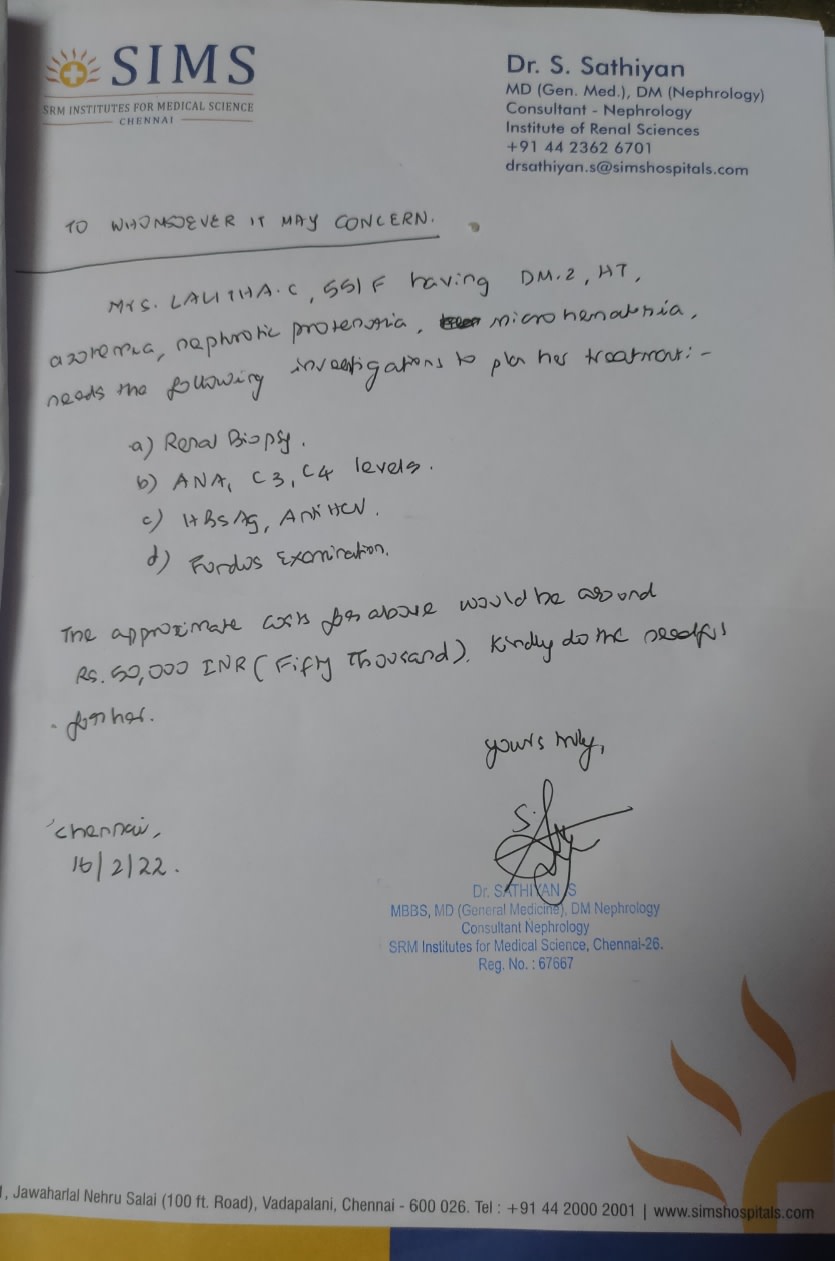 SIMS
SRM INSTITUTES FOR MEDICAL SCIENCE
CHENNAI
Dr. S. Sathiyan
MD (Gen. Med.), DM (Nephrology)
Consultant - Nephrology
Institute of Renal Sciences
+91 44 2362 6701
drsathiyan.s@simshospitals.com
TO WHOMSOEVER IT MAY CONCERN.
Mrs. LALITHA.C, 55/F having DM.2, HT,
azotemia, nephrotic proteinuria, microhematuria,
needs the following investigations to plan her treatment:-
a) Renal Biopsy.
b) ANA, C3, C4 levels.
c) HBSAg, Anti HCV.
d) Fundus Examination.
The approximate costs for above would be around
Rs. 50,000 INR (Fifty Thousand). Kindly do the needful
for her.
yours truly,
Chennai,
16/2/22.
Dr. SATHIYAN S
MBBS, MD (General Medicine), DM Nephrology
Consultant Nephrology
SRM Institutes for Medical Science, Chennai-26.
Reg. No. : 67667
1, Jawaharlal Nehru Salai (100 ft. Road), Vadapalani, Chennai - 600 026. Tel : +91 44 2000 2001 | www.simshospitals.com